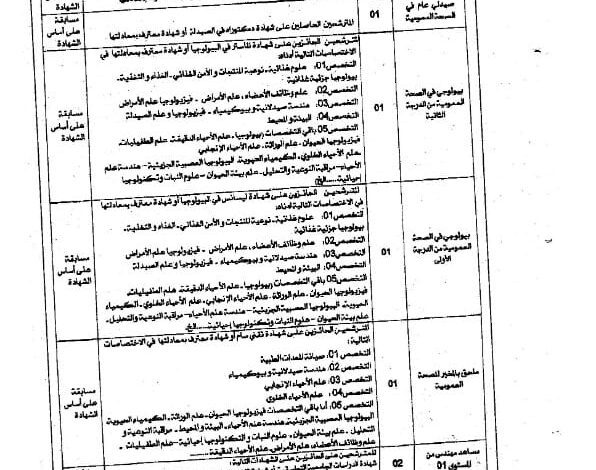 صيدلي عام في
الصحة العمومية
01
المترشحين الحاصلين على شهادة دكتوراه في الصيدلة أو شهادة معترف بمعادلتها
الشهادة
مسابقة
على أساس
الشهادة
بيولوجي في الصحة
العمومية من الدرجة
الثانية
01
المترشحين الحائزين على شهادة الماستر في البيولوجيا أو شهادة معترف بمعادلتها في
الاختصاصات التالية أدناه:
التخصص 01: علوم غذائية ـ نوعية المنتجات و الأمن الغذائي ـ الغذاء و التغذية ـ
بيولوجيا جزئية غذائية
التخصص 02: علم وظائف الأعضاء، علم الأمراض ـ فيزيولوجيا علم الأمراض
التخصص 03: هندسة صيدلانية و بيوكيمياء ـ فيزيولوجيا و علم الصيدلة
التخصص 04: البيئة و المحيط
التخصص 05 باقي التخصصات (بيولوجيا ـ علم الأحياء الدقيقة، علم الطفيليات،
فيزيولوجيا الحيوان ـ علم الوراثة ـ علم الأحياء الإنجابي
ـ علم الأحياء الخلوي ـ الكيمياء الحيوية، البيولوجيا العصبية الجزيئية ـ هندسة علم
الأحياء ـ مراقبة النوعية و التحليل ـ علم بيئة الحيوان ـ علوم النبات و تكنولوجيا
إحيائية.....الخ)
مسابقة
على أساس
الشهادة
بيولوجي في الصحة
العمومية من الدرجة
الأولى
01
المترشحين الحائزين على شهادة ليسانس في البيولوجيا أو شهادة معترف بمعادلتها
في الاختصاصات التالية أدناه:
التخصص 01: علوم غذائية ـ نوعية المنتجات و الأمن الغذائي ـ الغذاء و التغذية ـ
بيولوجيا جزئية غذائية
التخصص 02: علم وظائف الأعضاء، علم الأمراض ـ فيزيولوجيا علم الأمراض
التخصص 03: هندسة صيدلانية و بيوكيمياء ـ فيزيولوجيا و علم الصيدلة
التخصص 04: البيئة و المحيط
التخصص 05 باقي التخصصات (بيولوجيا ـ علم الأحياء الدقيقة، علم الطفيليات،
فيزيولوجيا الحيوان ـ علم الوراثة ـ علم الأحياء الإنجابي ـ علم الأحياء الخلوي ـ الكيمياء
الحيوية، البيولوجيا العصبية الجزيئية ـ هندسة علم الأحياء ـ مراقبة النوعية و التحليل ـ
علم بيئة الحيوان ـ علوم النبات و تكنولوجيا إحيائية.....الخ
مسابقة
على أساس
الشهادة
ملحق بالمخبر للصحة
العمومية
01
المترشحين الحائزين على شهادة تقني سام أو شهادة معترف بمعادلتها في الاختصاصات
التالية:
التخصص 01: صيانة المعدات الطبية
التخصص 02: هندسة صيدلانية و بيوكيمياء
التخصص 03: علم الأحياء الإنجابي
التخصص 04: علم الأحياء الخلوي
التخصص 05: أما باقي التخصصات فيزيولوجيا الحيوان ـ علم الوراثة ـ الكيمياء الحيوية،
البيولوجيا العصبية الجزيئية، هندسة علم الأحياء ـ البيئة و المحيط ـ مراقبة النوعية و
التحليل ـ علم بيئة الحيوان ـ علوم النبات و التكنولوجيا إحيائية ـ علم الطفيليات ـ
علم وظائف الأعضاء، علم الأمراض، علم الأحياء الدقيقة.....
مسابقة
على أساس
الشهادة
مساعد مهندس من
المستوى 01
02
المترشحين على الشهادات التالية:
شهادة الدراسات الجامعية التطبيقية